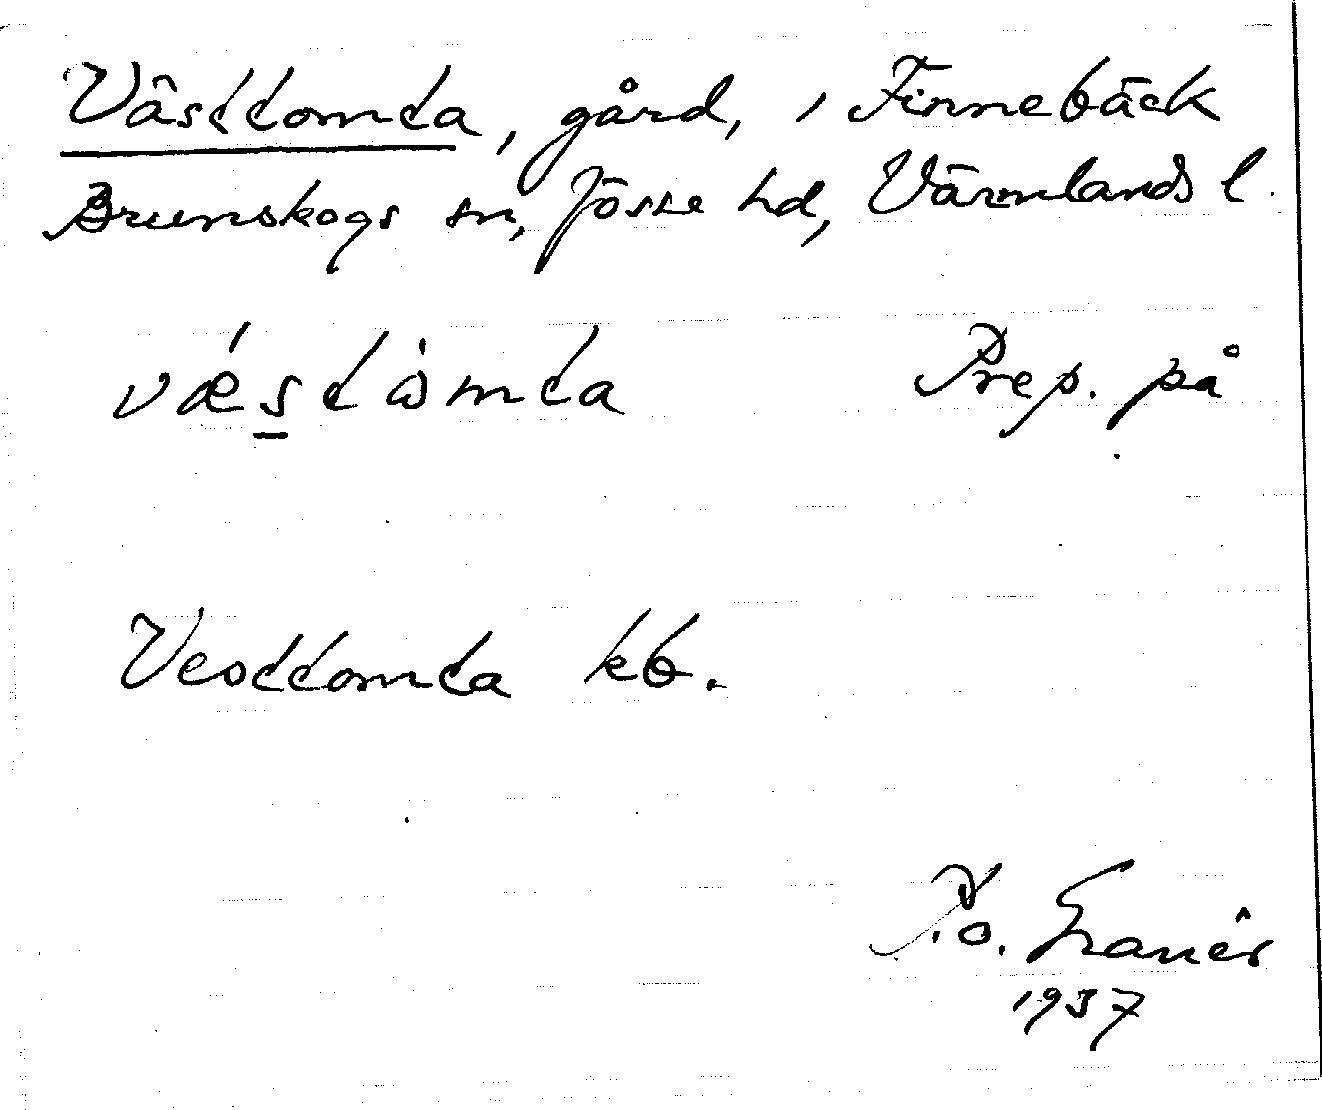 Västtomta, gård, i Finnebäck
Brunskogs sn, Jösse hd, Värmlands l.
vǽstòmta Prep. på
Vesttomta kb.
P.o.
1937